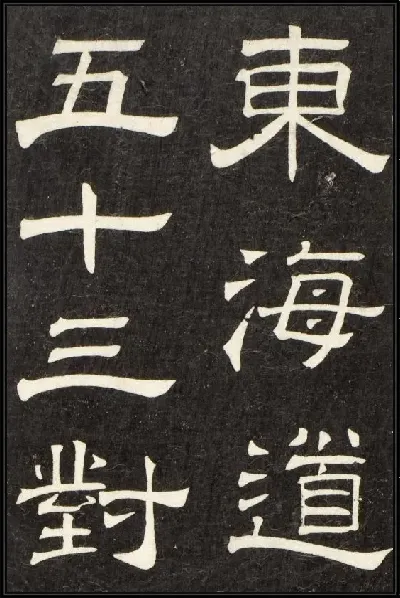 東海道
五十三對